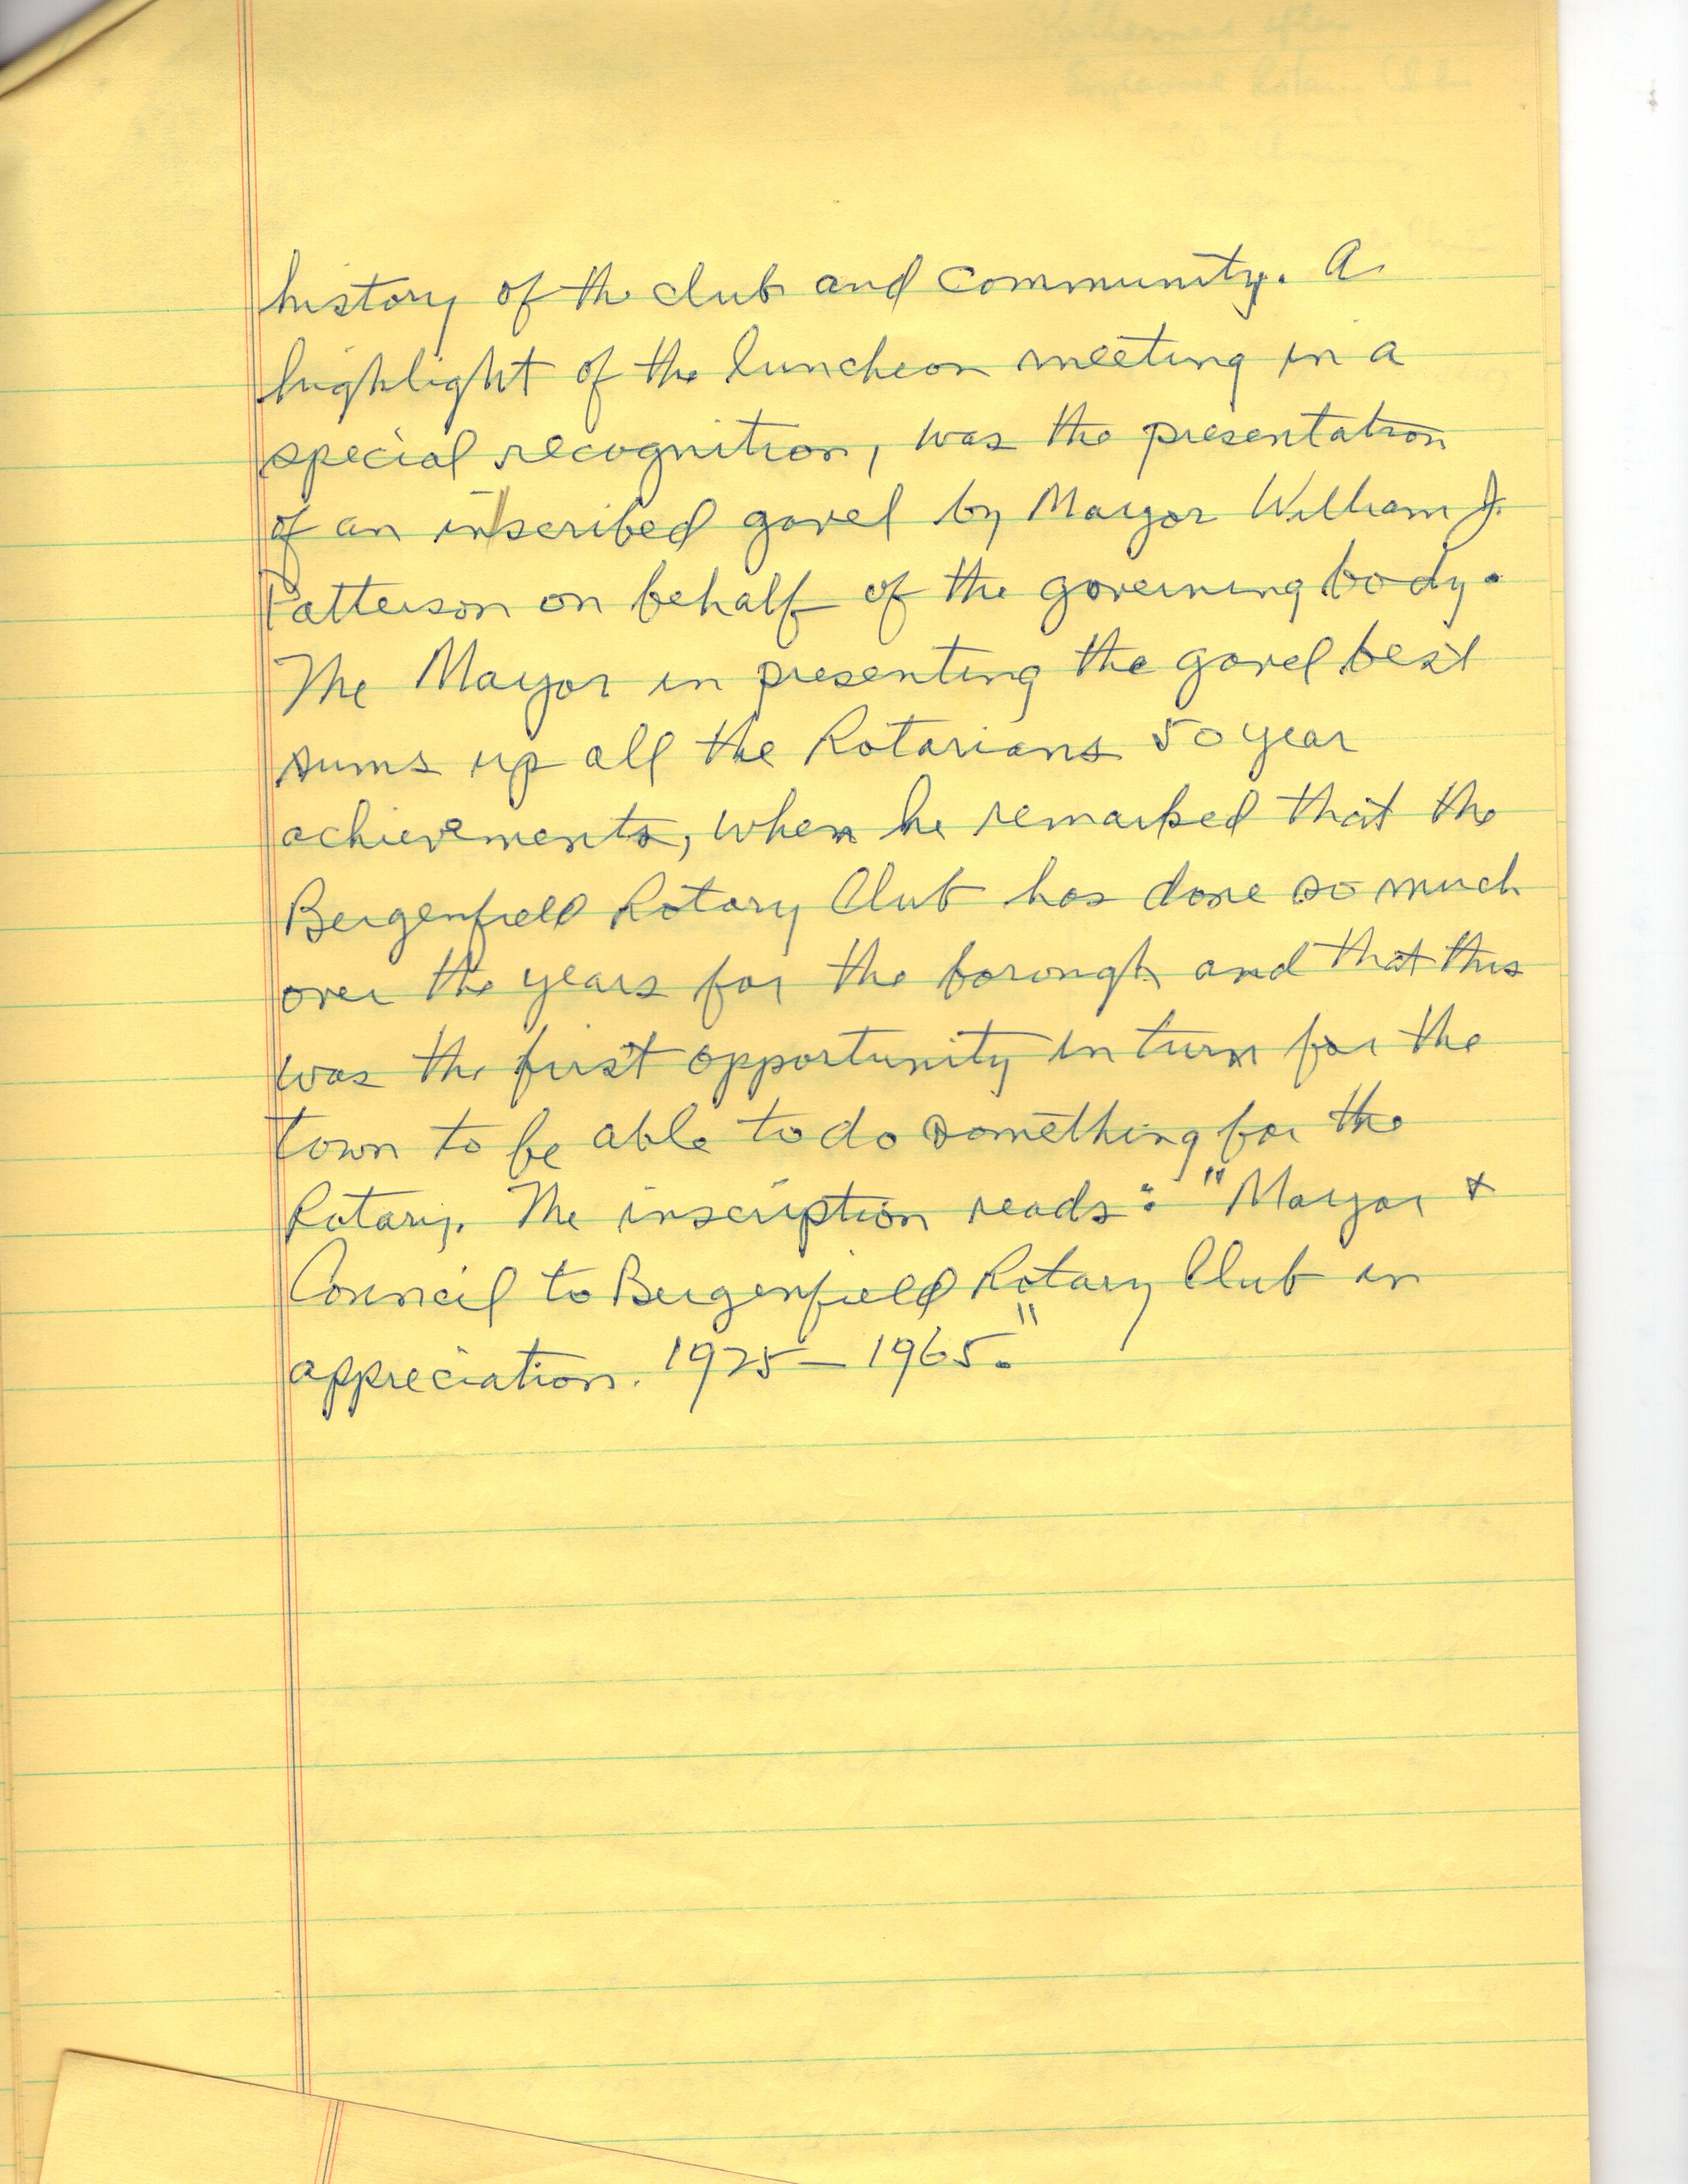 history of the club and community. A
highlight of the luncheon meeting in a
special recognition, was the presentation
of an inscribed gavel by Mayor William J.
Patterson on behalf of the governing body.
The Mayor in presenting the gavel best
sums up all the Rotarians 50 year
achievements, when he remarked that the
Bergenfield Rotary Club has done so much
over the years for the borough and that this
was the first opportunity in turn for the
town to be able to do something for the
Rotary. The inscription reads: "Mayor &
Council to Bergenfield Rotary Club in
appreciation. 1925 – 1965."